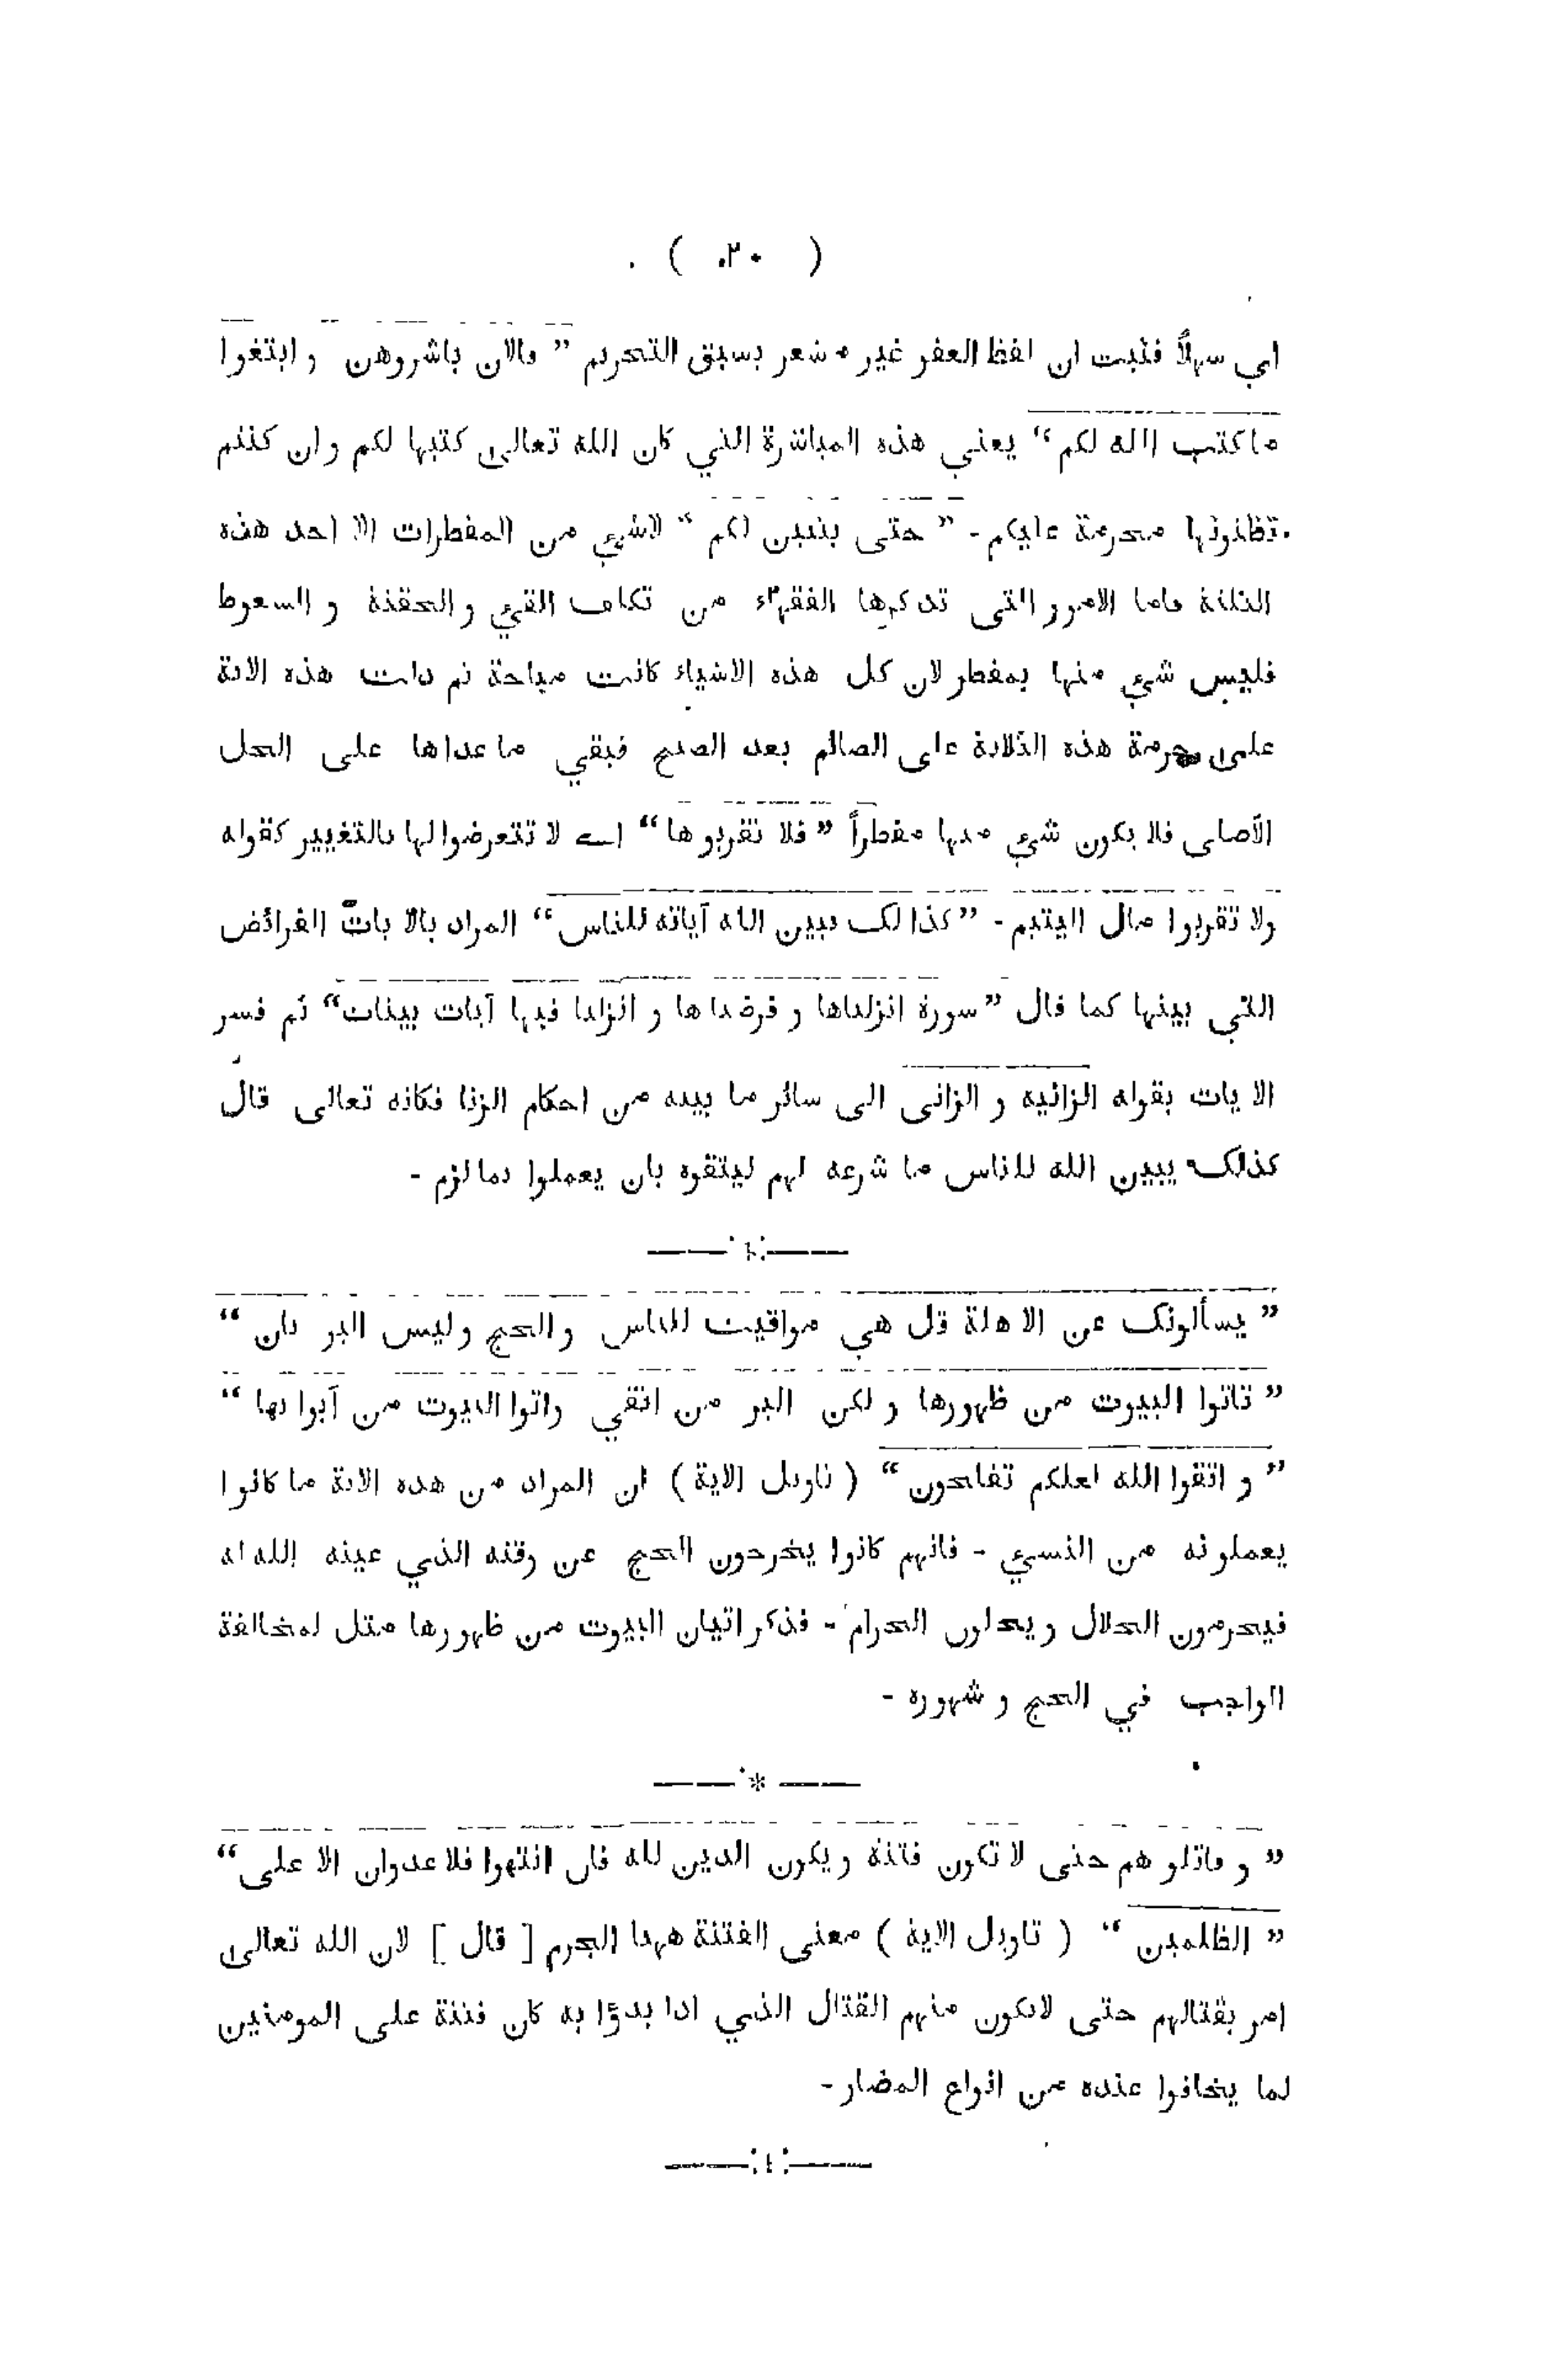 ( ٢٠ )
اي سهلاً فثبت ان لفظ العفر غير مشعر بسبق التحريم ” فالان باشروهن و ابتغوا
ما كتب الله لكم “ يعني هذه المباشرة التي كان الله تعالى كتبها لكم وان كنتم
تظنونها محرمة عليكم - ” حتى يتبين لكم “ لاشيئ من المفطرات الا احد هذه
الثلثة فاما الامور التى تذكرها الفقهاء من تكلف القيئ والحقنة و السعوط
فليس شيئ منها بمفطر لان كل هذه الاشياء كانت مباحة ثم دلت هذه الاية
على حرمة هذه الثلاثة على الصائم بعد الصبح فبقي ما عداها على الحل
الأصلى فلا يكون شيئ منها مفطراً ” فلا تقربوها “ اے لا تتعرضوا لها بالتغيير كقوله
ولا تقربوا مال اليتيم - ” كذالك يبين الله آياته للناس “ المراد بالايات الفرائض
التي بينها كما قال ” سورة انزلناها و فرضناها و انزلنا فيها آيات بينات “ ثم فسر
الايات بقوله الزانيه و الزانى الى سائر ما بينه من احكام الزنا فكانه تعالى قال
كذلك يبين الله للناس ما شرعه لهم ليتقوه بان يعملوا بما لزم -
” يسألونك عن الاهلة قل هي مواقيت للناس والحج وليس البر بان “
” تاتوا البيوت من ظهورها ولكن البر من اتقي واتوا البيوت من آبوابها “
” و اتقوا الله لعلكم تفلحون “ ( تاويل الاية ) ان المراد من هذه الاية ما كانوا
يعملونه من النسيئ - فانهم كانوا يخرجون الحج عن وقته الذي عينه الله له
فيحرمون الحلال ويحلون الحرام - فذكر اتيان البيوت من ظهورها مثل لمخالفة
الواجب في الحج و شهوره -
*
” و قاتلوهم حتى لا تكون فتنة ويكون الدين لله فان انتهوا فلا عدوان الا على “
” الظلمين “ ( تاويل الاية ) معنى الفتنة ههنا الجرم [ قال ] لان الله تعالى
امر بقتالهم حتى لايكون منهم القتال الذي اذا بدؤا به كان فتنة على المومنين
لما يخافوا عنده من انواع المضار -